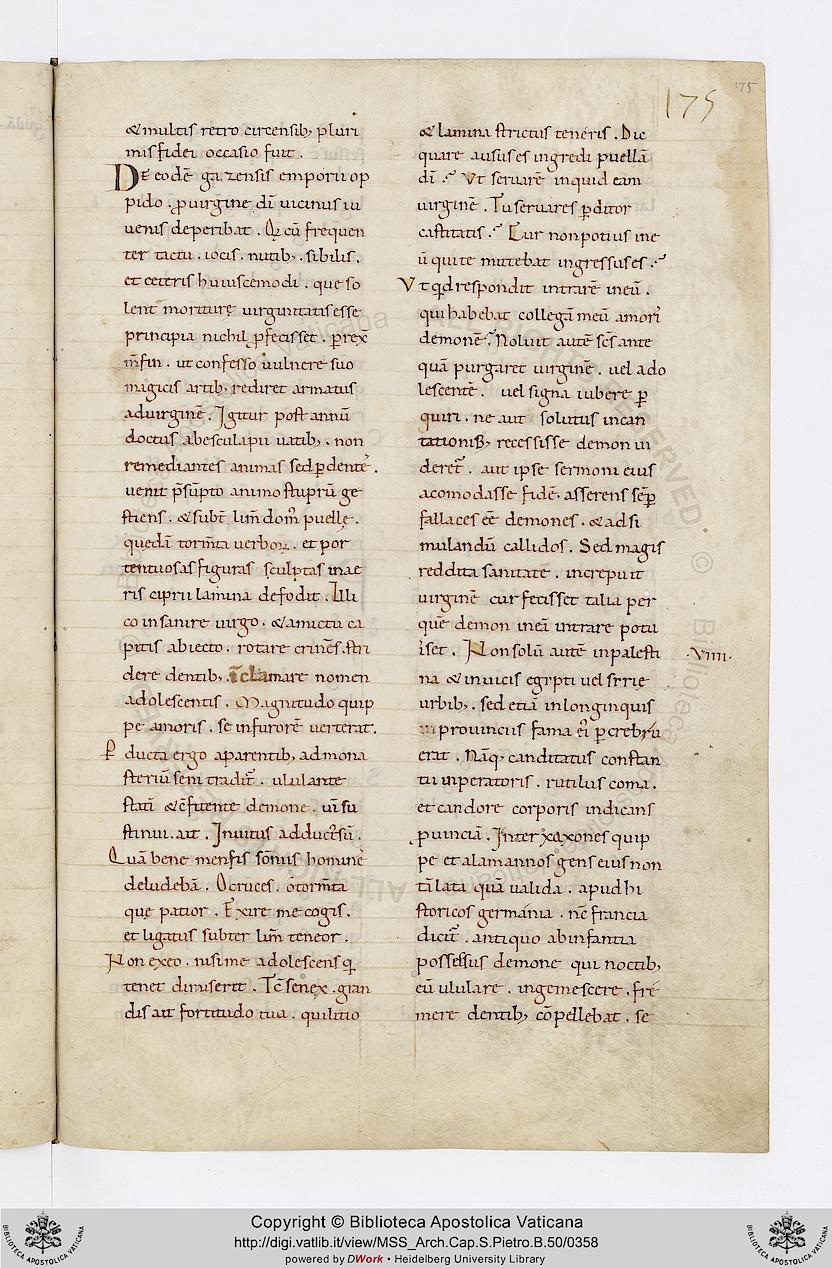 175
175
& multis retro circensib; pluri
mis fidei occasio fuit .
DE eodē gazensis emporii op
pido . ꝓ uirgine dī uicinus iu
uenis deperibat . Q cū frequen
ter tactu . iocis . nutib; . sibilis .
et ceteris huiuscemodi . que so
lent moriturę uirginitatis esse
principia nichil ꝓfecisset . ꝑrex
m̄fin . ut confesso uulnere suo
magicis artib; rediret armatus
aduirginē . Igitur post annū
doctus abesculapii uatib; . non
remediantes animas sed ꝑdentē .
uenit p̄sūpto animo stuprū ge
stiens . & subt̄ lim̄ dom̄ puellę .
quedā torm̄ta uerboꝝ . et por
tentuosas figuras sculptas in ae
ris ciprii lamina defodit . Illi
co insanire uirgo . & amictu ca
pitis abiecto . rotare crinēs . stri
dere dentib; . īclamare nomen
adolescentis . Magnitudo quip
pe amoris . se infurorē uerterat .
ꝑ ducta ergo aparentib; admona
steriū seni tradit̄ . ululante
statī & c̄fitente demone . uim su
stinui . ait . Inuitus adduct̄ sū .
Quā bene menfis sōniis hominē
deludebā . O cruces . o torm̄ta
que patior . Exire me cogis .
et ligatus subter lim̄ teneor .
Non exeo . nisi me adolescens q̄
tenet dimiserit . Tc̄ senex . gran
dis ait fortitudo tua . qui litio
& lamina strictus teneris . Dic
quare ausus es ingredi puellā
dī ? Vt seruarē inquid eam
uirginē . Tu seruares ꝑditor
castitatis ? Cur non potius in e
ū qui te mittebat ingressus es ?
Vt qd respondit intrarē in eū .
qui habebat collegā meū amoris
demonē ? Noluit autē sc̄s ante
quā purgaret uirginē . uel ado
lescentē . uel signa iubere ꝑ
quiri . ne aut solutus incan
tationib; recessisse demon ui
deret̄ . aut ipse sermoni eius
acomodasse fidē . asserens sēꝑ
fallaces eē demones . & adsi
mulandū callidos . Sed magis
reddita sanitate . increpuit
uirginē cur fecisset talia per
que demon in eā intrare potu
isset . Non solū autē in palesti
.VIIII.
na & in uicis egypti uel syrie
urbib; . sed etiā in longinquis
in prouinciis fama ei ꝑcrebru
erat . Nāq; canditatus constan
tii inperatoris . rutilus coma .
et candore corporis indicans
ꝓuinciā . Inter xaxones quip
pe et alamannos gens eius non
tā lata quā ualida . apud hi
storicos germánia . nc̄ francia
dicit̄ . antiquo ab infantia
possessus demone qui noctib;
eū ululare . ingemescere . fre
mere dentib; cōpellebat . se
Copyright © Biblioteca Apostolica Vaticana
http://digi.vatlib.it/view/MSS_Arch.Cap.S.Pietro.B.50/0358
powered by DWork • Heidelberg University Library